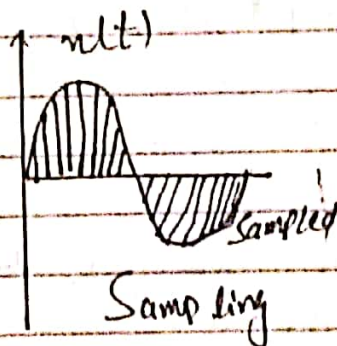 x(t)
Sampled
Sampling